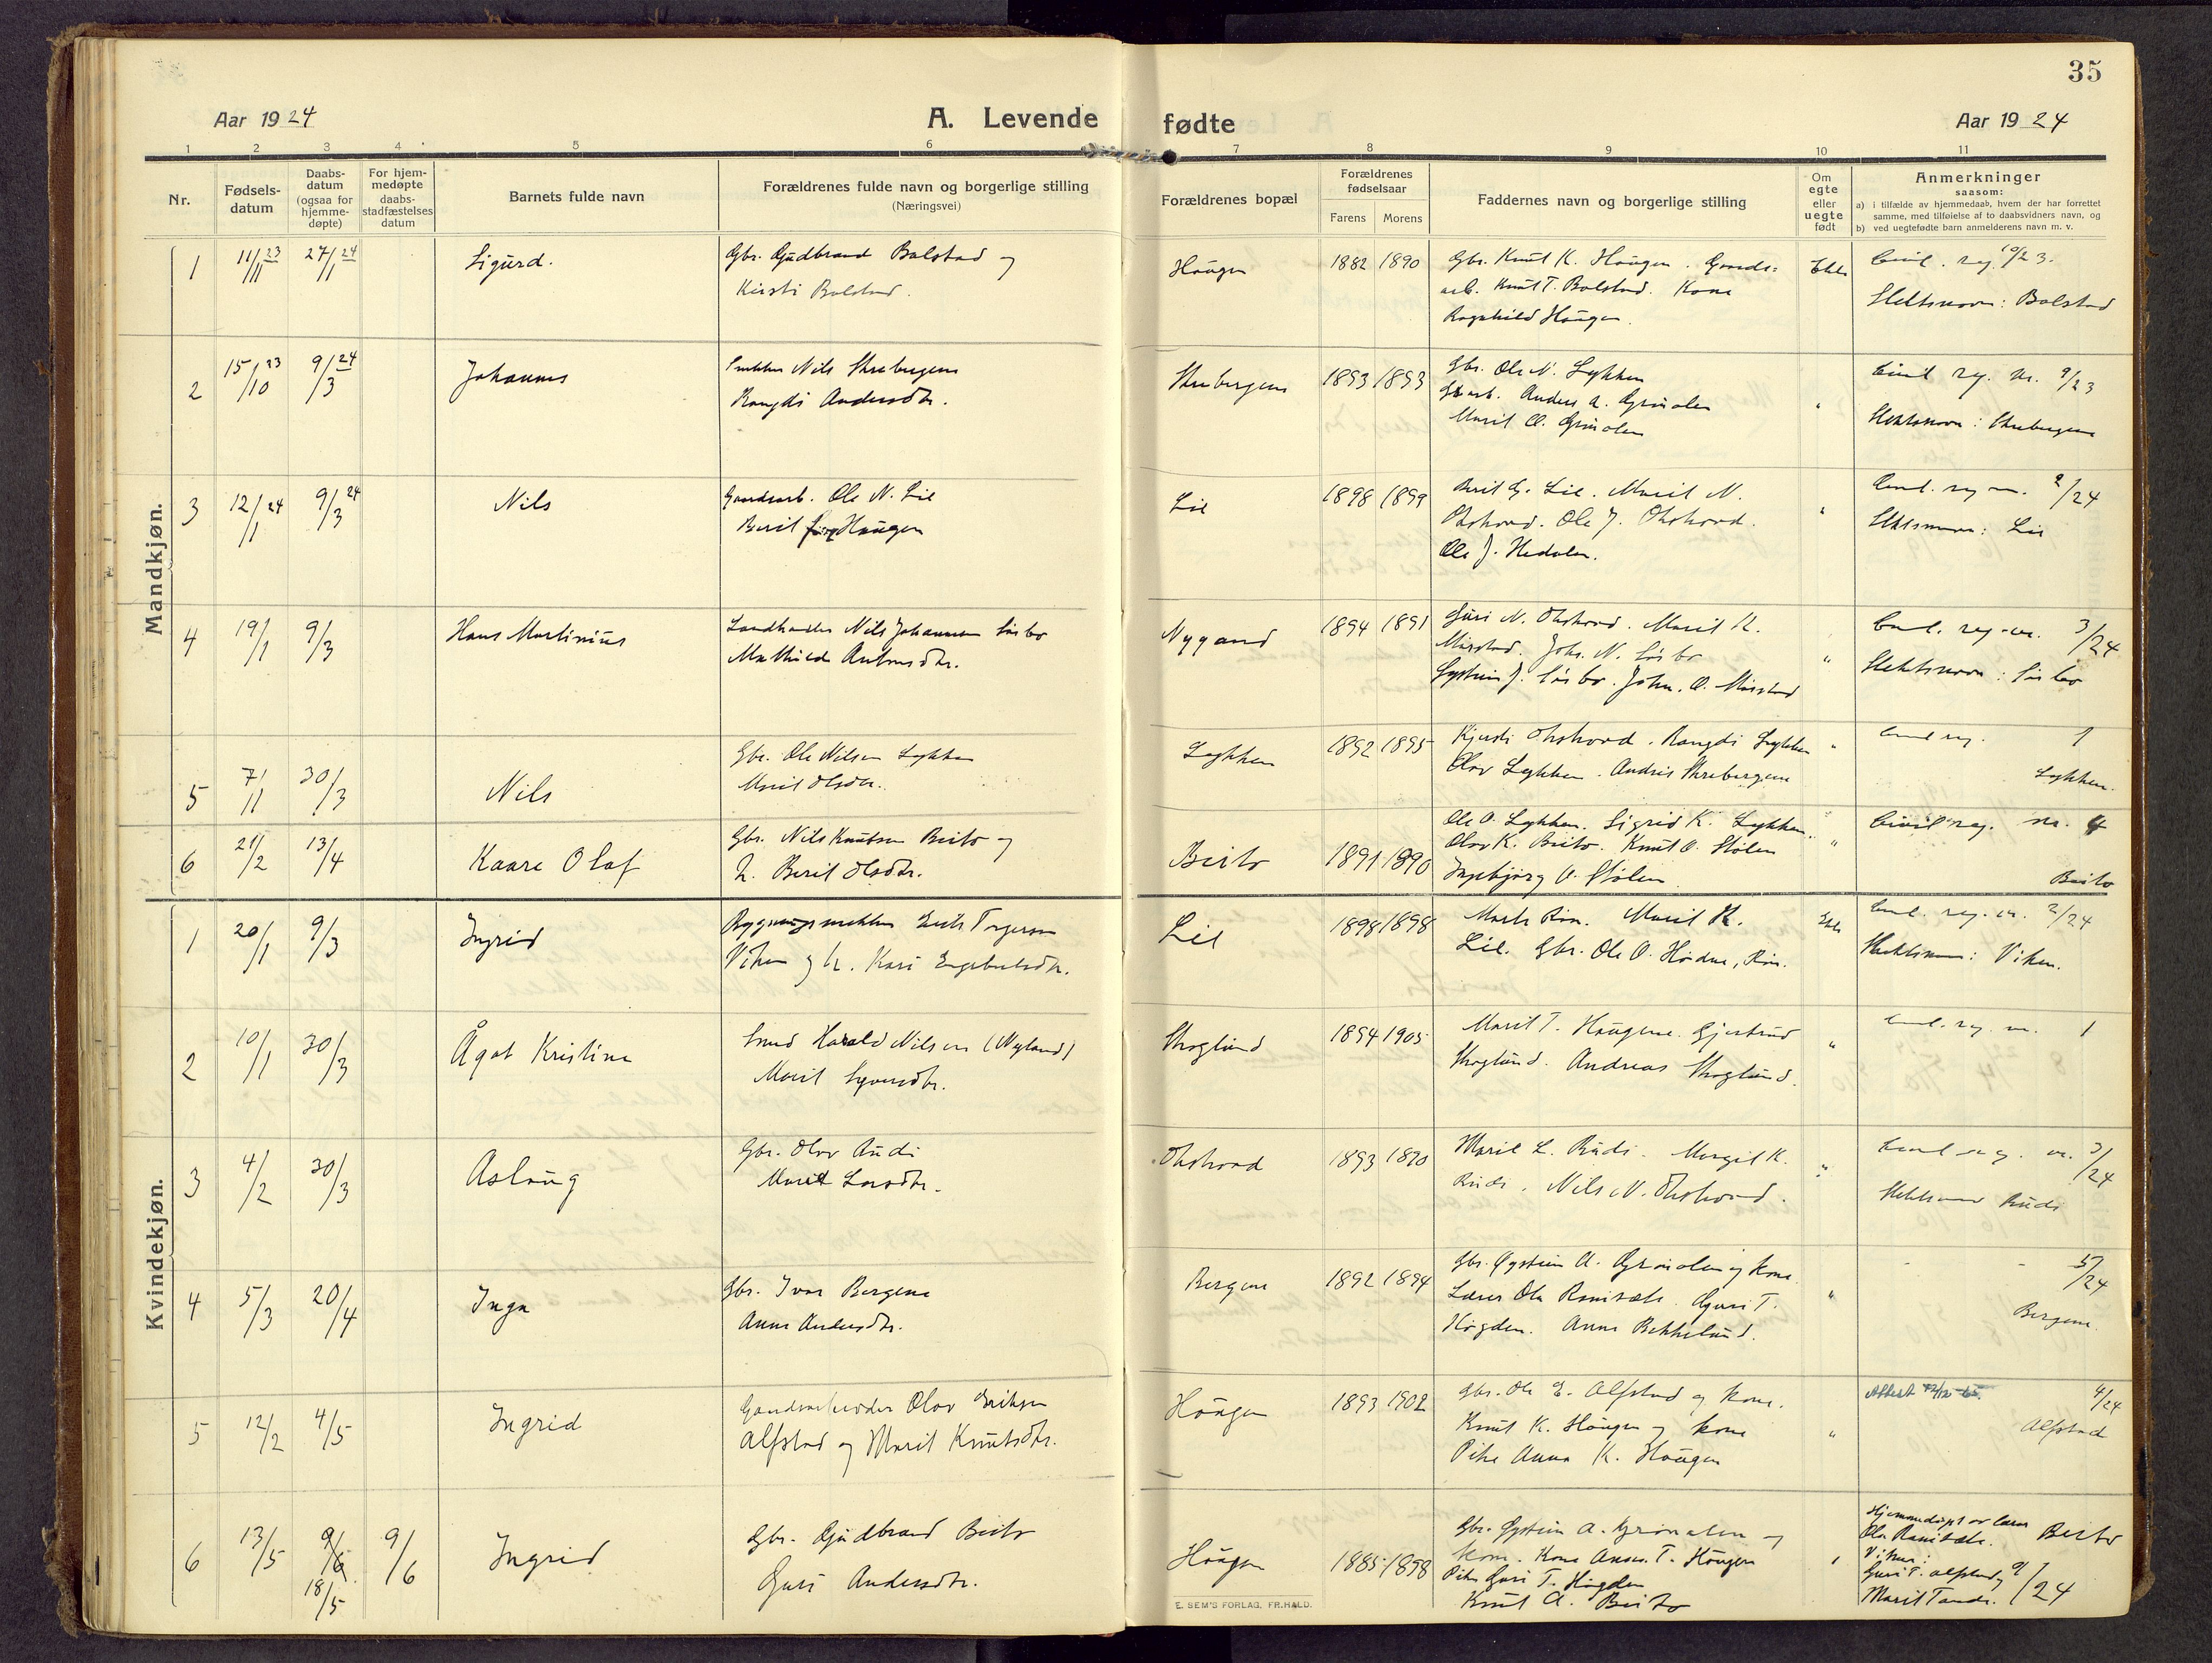 35
Aar 1924
A. Levende fødte
Aar 1924
1 2 3 4 5 6 7 8 9 10 11
Nr.
Fødsels-
datum
Daabs-
datum
(ogsaa for
hjemme-
døpte)
For hjem-
medøpte
daabs-
stadfæstelses
datum
Barnets fulde navn
Forældrenes fulde navn og borgerlige stilling
(Næringsvei)
Forældrenes bopæl
Forældrenes
fødselsaar
Farens Morens
Faddernes navn og borgerlige stilling
Om
egte
eller
uegte
født
Anmerkninger
saasom:
a) i tilfælde av hjemmedaab, hvem der har forrettet
samme, med tilføielse af to daabsvidners navn, og
b) ved uegtefødte barn anmelderens navn m. v.
Mandkjøn.
1 11/11 23 27/1 24 Sigurd. Gbr. Gudbrand Bolstad og
Kirsti Bolstad.
Haugen 1882 1890 Gbr. Knut K. Haugen. Gaards-
arb. Knut T. Bolstad. Kone
Ragnhild Haugen.
Egte Civil. reg. 10/23.
Slektsnavn: Bolstad
2 15/10 23 9/3 24 Johannes Nils Skrebergene
Rangdi Andersdtr.
Skrebergene 1893 1893 Gbr. Ole N. Lykken
Gbarb. Anders A. Grønolen
Marit O. Grønolen
" Civil reg. nr. 9/23
Slektsnavn: Skrebergene
3 12/1 24 9/3 24 Nils Gaardsarb. Ole N. Lie
Berit Haugen
Lie 1898 1899 Berit G. Lie. Marit N.
Okshovd. Ole J. Okshovd.
Ole J. Hedalen.
" Civil. reg nr. 2/24
Slektsnavn: Lie
4 19/1 9/3 Hans Martinius Landhandler Nils Johannesen Sørbo
Mathilde Antonsdtr.
Nygaard 1894 1891 Guri N. Okshovd. Marit K.
Mørstad. Johs. N. Sørbo
Gystein J. Sørbo. John. O. Mørstad
" Civil. reg. nr. 3/24
Slektsnavn: Sørbo
5 7/11 30/3 Nils Gbr. Ole Nilsen Lykken
Marit Olsdtr.
Lykken 1892 1895 Kjersti Okshovd. Rangdi Lykken
Olav Lykken. Andris Skrebergene
" Civil reg. 1
Lykken.
6 21/2 13/4 Kaare Olaf Gbr. Nils Knutsen Beito og
h. Berit Olsdtr.
Beito 1891 1890 Ole O. Lykken. Sigrid K. Lykken.
Olav K. Beito. Knut O. Stølen
Ingebjørg O. Stølen
" Civil reg. nr. 4
Beito
Kvindekjøn.
1 20/1 9/3 Ingrid Bygningssnekker Torgersen
Viken og h. Kari Engebretsdtr.
Lie 1898 1898 Marit K.
Lie. Gbr. Ole O. Høidne, Røn.
Egte Civil. reg. nr. 2/24
Slektsnavn: Viken.
2 10/1 30/3 Ågot Kristine Smed Harald Nilsen (Nyland)
Marit Syversdtr.
Skoglund 1894 1905 Marit T. Haugene. Gjertrud
Skoglund. Andreas Skoglund.
" Civil. reg. nr. 1
3 4/2 30/3 Aslaug Gbr. Olav Rudi
Marit Larsdtr.
Okshovd 1893 1890 Marit L. Rudi. Margit K.
Rudi. Nils N. Okshovd.
" Civil reg. nr. 3/24
Slektsnavn Rudi
4 5/3 20/4 Inga Gbr. Ivar Bergene
Anne Andersdtr.
Bergene 1892 1894 Gbr. Øystein A. Grønolen og kone.
Lærer Ola Ramsæte. Guri T.
Høgden. Anne Bekkelund.
" 5/24
Bergene.
5 12/2 4/5 Ingrid Gaardsarbeider Olav Eriksen
Alfstad og Marit Knutsdtr.
Haugen 1893 1902 Gbr. Ole E. Alfstad og kone.
Knut K. Haugen og kone
Pike Anna K. Haugen
" Attest 4/24
Alfstad
6 13/5 9/6 18/5 9/6 Ingrid Gbr. Gudbrand Beito
Guri Andersdtr.
Haugen 1885 1898 Gbr. Øystein A. Grønolen og
kone. Kone Anne. T. Haugen
Pike Guri T. Høgden
Knut A. Beito
Hjemmedøpt av lærer
Ola Ramsæte. Beito
Vitner:
Guri T. Alfstad og 9/24
Marit
E. SEM'S FORLAG, FR.HALD.